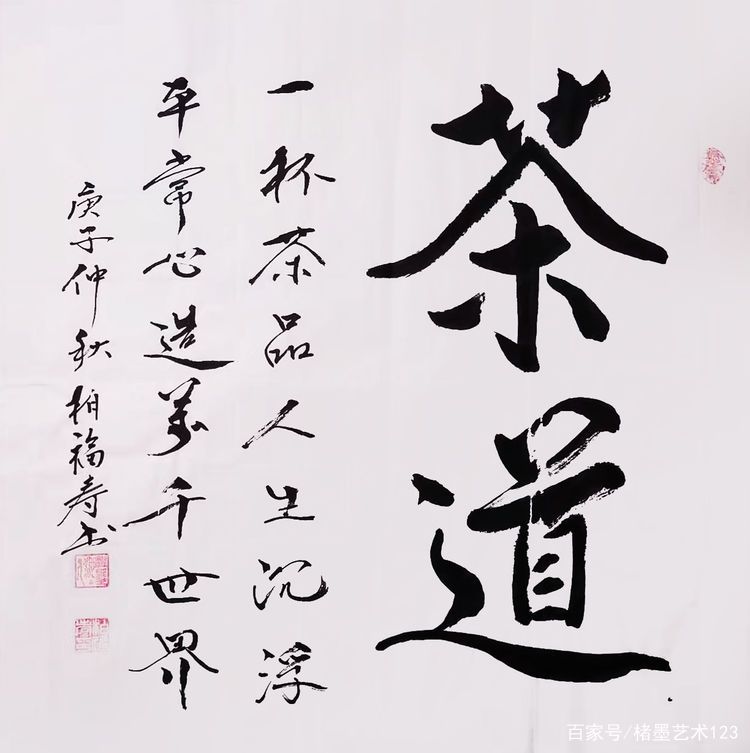 茶道
一杯茶品人生沉浮
平常心造万千世界
庚子仲秋柏福寿书
百家号/楮墨艺术123